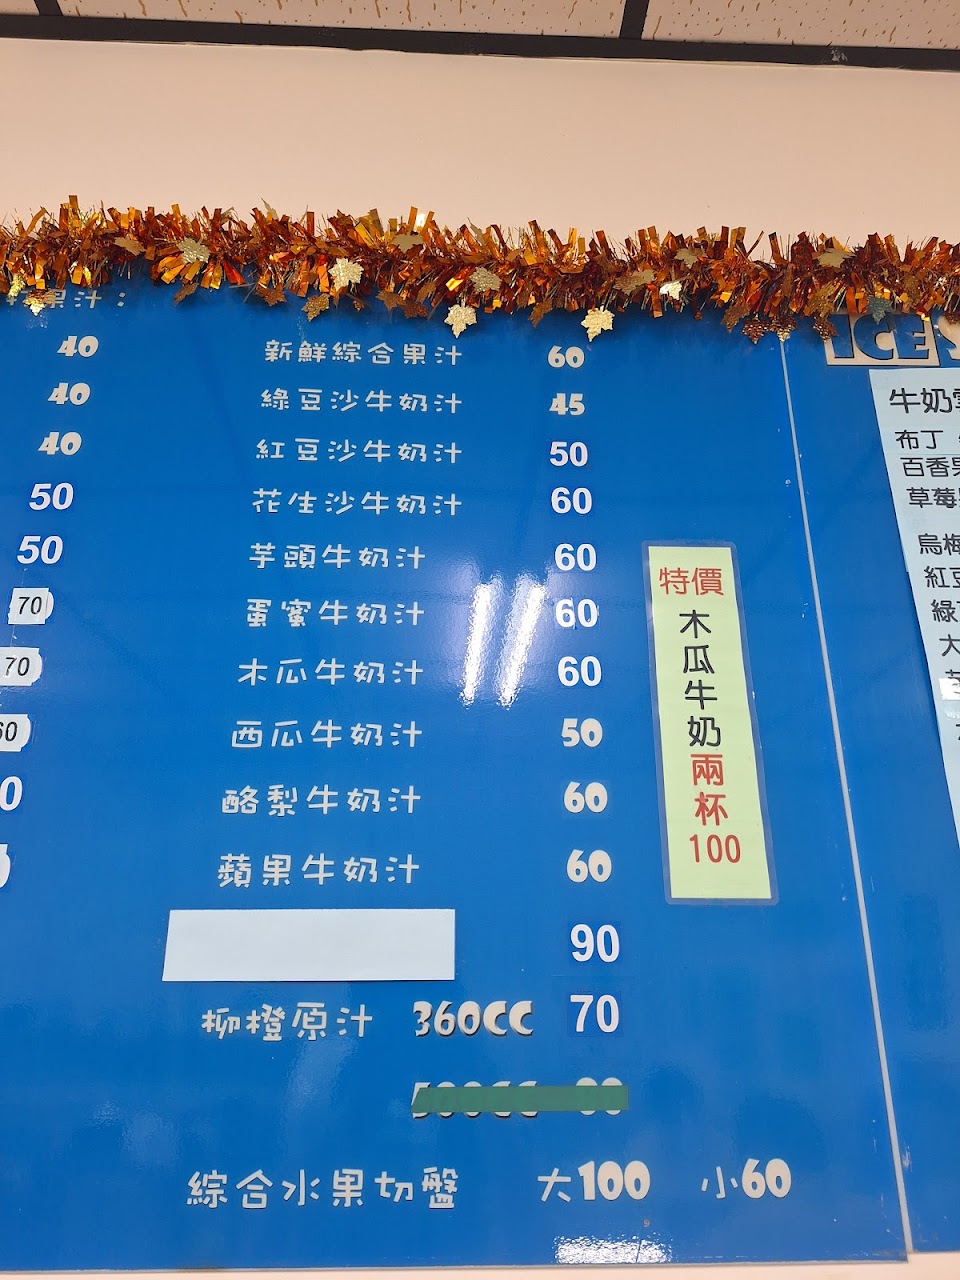 果汁：
40
40
40
50
50
70
70
60
新鮮綜合果汁 60
綠豆沙牛奶汁 45
紅豆沙牛奶汁 50
花生沙牛奶汁 60
芋頭牛奶汁 60
蛋蜜牛奶汁 60
木瓜牛奶汁 60
西瓜牛奶汁 50
酪梨牛奶汁 60
蘋果牛奶汁 60
90
柳橙原汁 360CC 70
綜合水果切盤 大100 小60
特價
木瓜牛奶兩杯
100
ICE
牛奶
布丁
百香果
草莓
烏梅
紅豆
綠
大